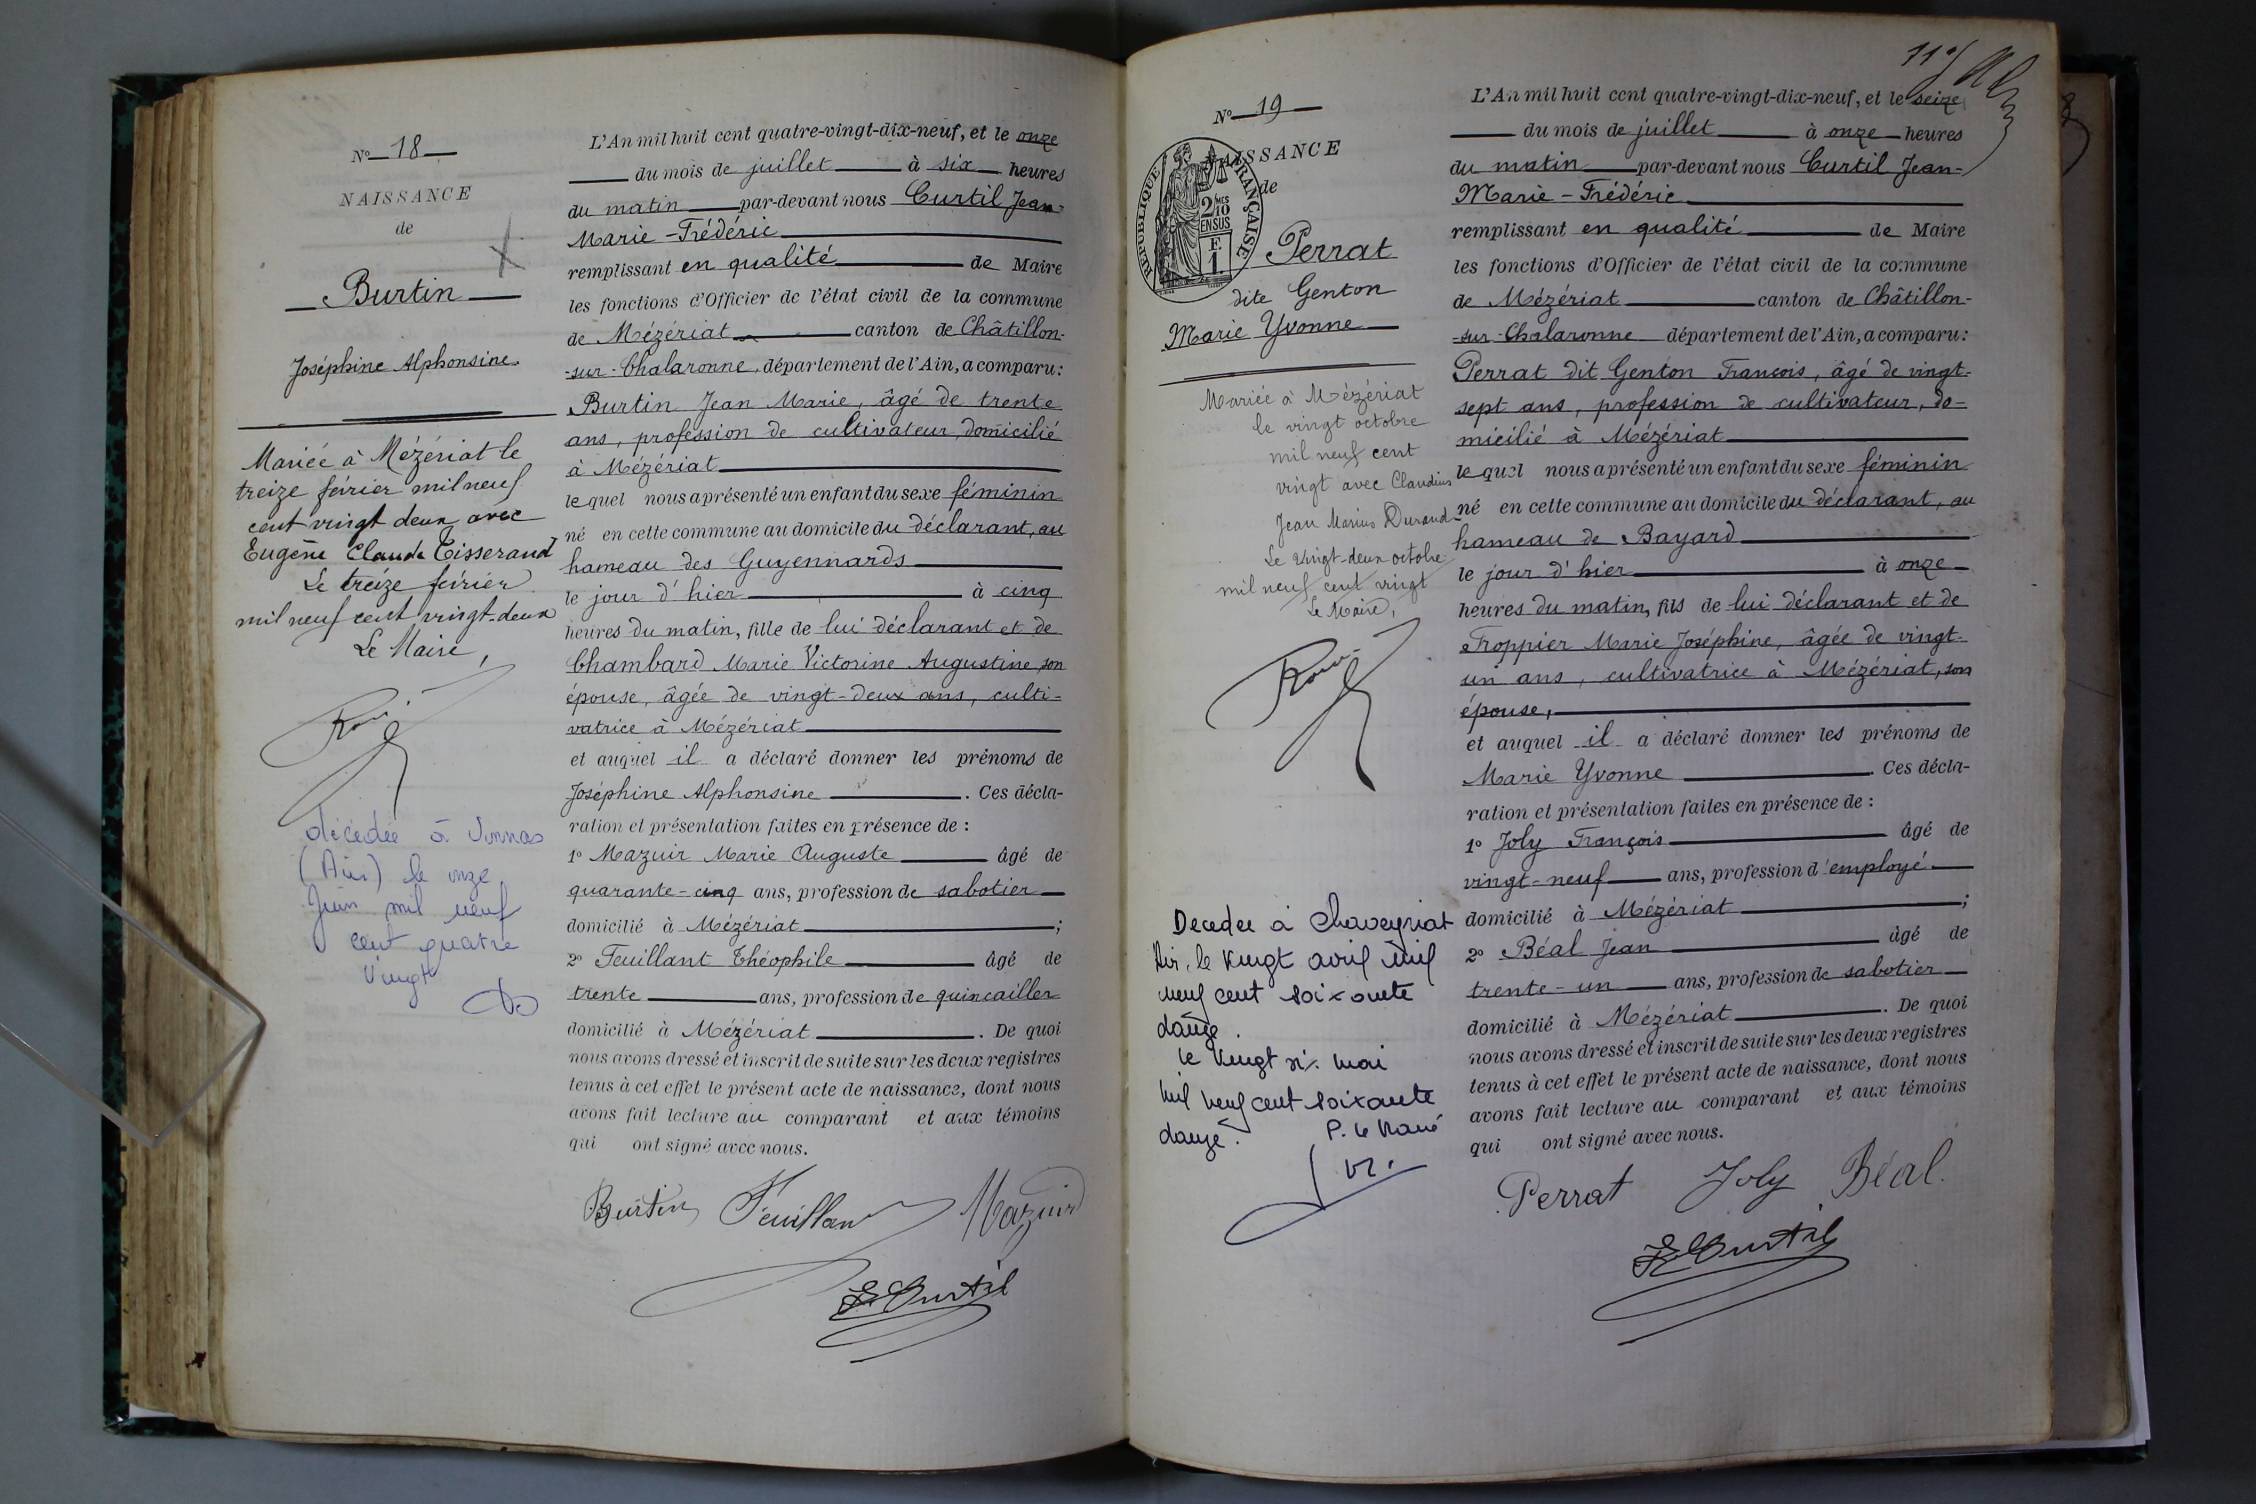 N° 18
NAISSANCE
de
Burtin
Joséphine Alphonsine
Mariée à Mézériat le
treize février mil neuf
cent vingt deux avec
Eugène Claude Tisserand
Le treize février
mil neuf cent vingt-deux
Le Maire,
décédée à Vonnas
(Ain) le onze
Juin mil neuf
cent quatre
Vingt
L'An mil huit cent quatre-vingt-dix-neuf, et le onze
du mois de juillet à six heures
du matin par-devant nous Curtil Jean-
Marie-Frédéric
remplissant en qualité de Maire
les fonctions d'Officier de l'état civil de la commune
de Mézériat canton de Châtillon-
-sur-Chalaronne, département de l'Ain, a comparu:
Burtin Jean Marie, âgé de trente
ans, profession de cultivateur, domicilié
à Mézériat
lequel nous a présenté un enfant du sexe féminin
né en cette commune au domicile du déclarant, au
hameau des Guyennards
le jour d'hier à cinq
heures du matin, fille de lui déclarant et de
Chambard Marie Victorine Augustine, son
épouse, âgée de vingt-deux ans, culti-
vatrice à Mézériat
et auquel il a déclaré donner les prénoms de
Joséphine Alphonsine. Ces décla-
ration et présentation faites en présence de :
1° Mazuir Marie Auguste âgé de
quarante-cinq ans, profession de sabotier
domicilié à Mézériat ;
2° Feuillant Théophile âgé de
trente ans, profession de quincailler
domicilié à Mézériat. De quoi
nous avons dressé et inscrit de suite sur les deux registres
tenus à cet effet le présent acte de naissance, dont nous
avons fait lecture au comparant et aux témoins
qui ont signé avec nous.
Burtin Feuillant Mazuir
F. Curtil
11e/
N° 19
NAISSANCE
de
RÉPUBLIQUE FRANÇAISE
2/10 MES
EN SUS
F.
1.
Perrat
dite Genton
Marie Yvonne
Mariée à Mézériat
le vingt octobre
mil neuf cent
vingt avec Claudius
Jean Marius Durand
Le vingt-deux octobre
mil neuf cent vingt
Le Maire,
Decedee à Chaveyriat
Ain, le vingt avril mil
neuf cent soixante
douze.
le vingt six mai
mil neuf cent soixante
douze.
L'An mil huit cent quatre-vingt-dix-neuf, et le seize
du mois de juillet à onze heures
du matin par-devant nous Curtil Jean-
Marie-Frédéric
remplissant en qualité de Maire
les fonctions d'Officier de l'état civil de la commune
de Mézériat canton de Châtillon-
-sur-Chalaronne département de l'Ain, a comparu:
Perrat dit Genton François, âgé de vingt-
sept ans, profession de cultivateur, do-
micilié à Mézériat
lequel nous a présenté un enfant du sexe féminin
né en cette commune au domicile du déclarant, au
hameau de Bayard
le jour d'hier à onze
heures du matin, fils de lui déclarant et de
Froppier Marie Joséphine, âgée de vingt-
un ans, cultivatrice à Mézériat, son
épouse,
et auquel il a déclaré donner les prénoms de
Marie Yvonne. Ces décla-
ration et présentation faites en présence de :
1° Joly François âgé de
vingt-neuf ans, profession d'employé
domicilié à Mézériat ;
2° Béal Jean âgé de
trente-un ans, profession de sabotier
domicilié à Mézériat. De quoi
nous avons dressé et inscrit de suite sur les deux registres
tenus à cet effet le présent acte de naissance, dont nous
avons fait lecture au comparant et aux témoins
qui ont signé avec nous.
Perrat Joly Béal.
F. Curtil